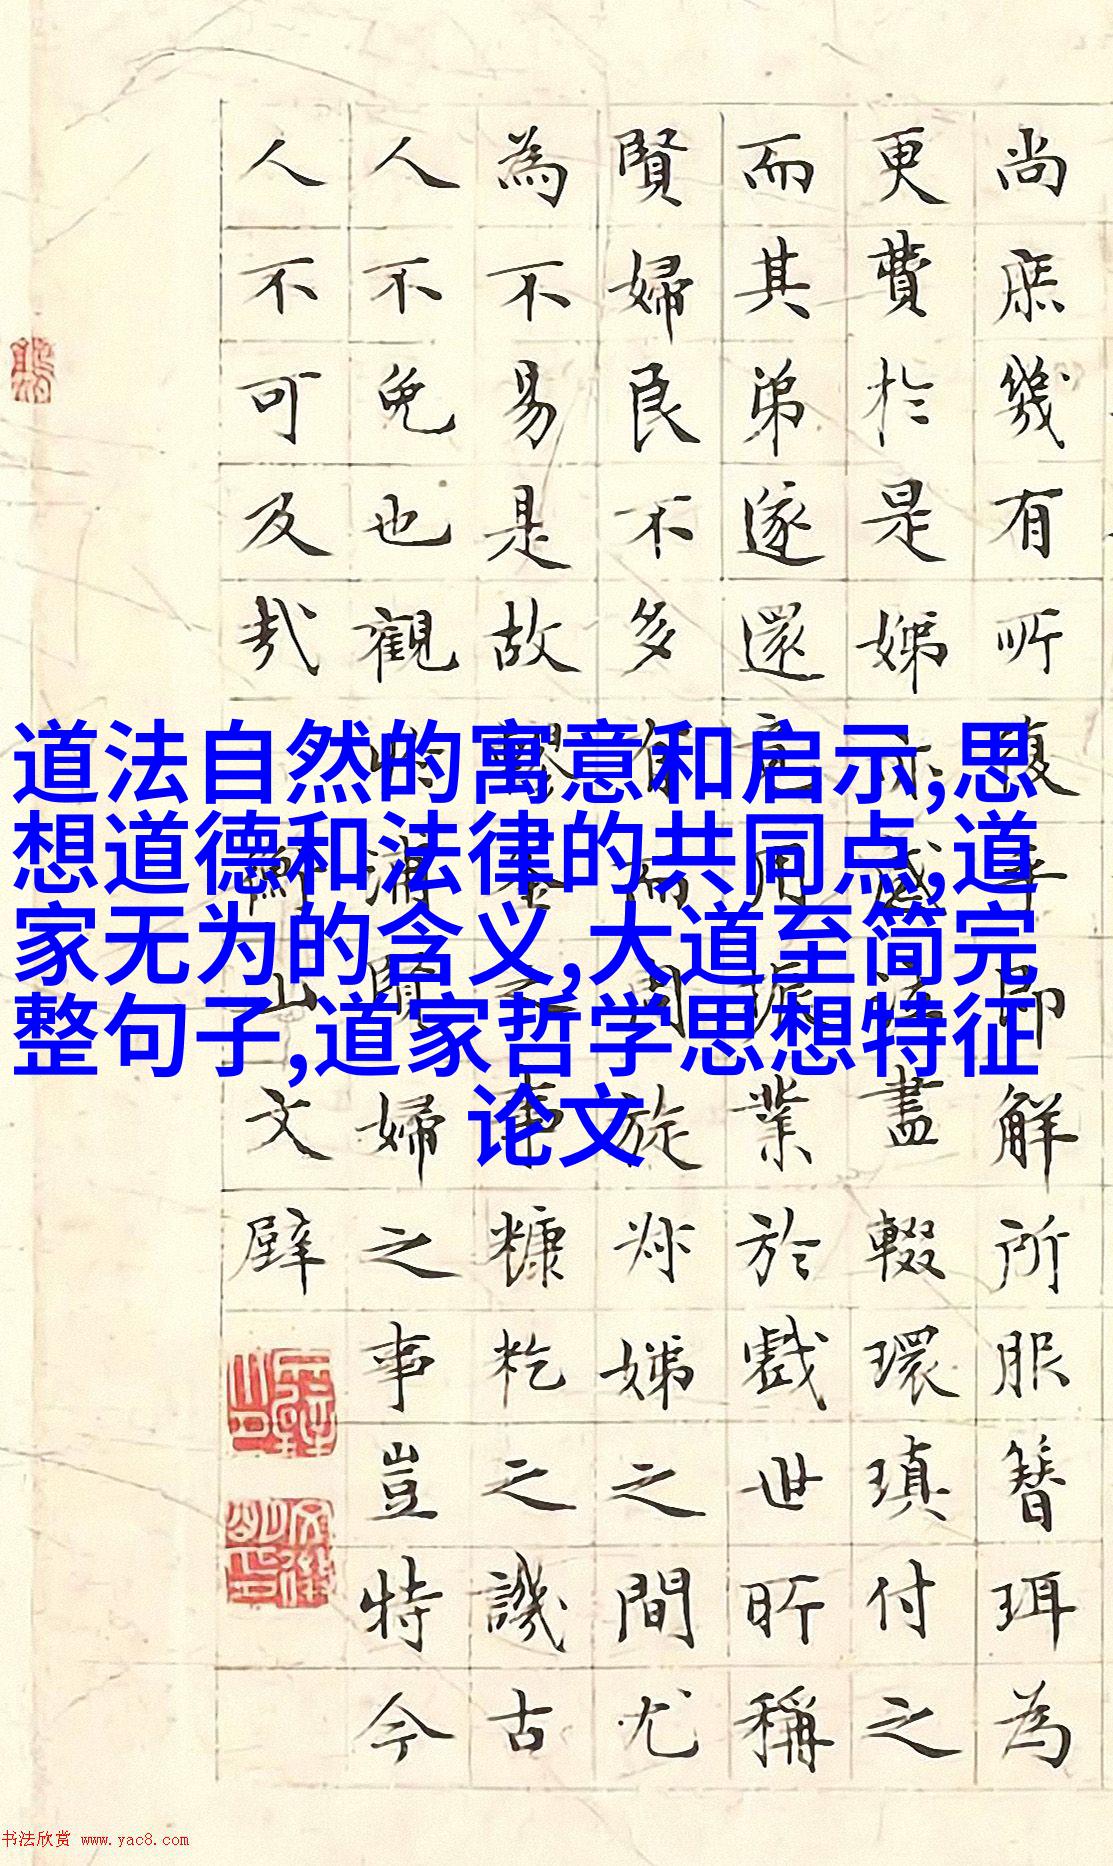 道法自然的寓意和启示,思
想道德和法律的共同点,道
家无为的含义,大道至简完
整句子,道家哲学思想特征
论文
尚庶幾有所復乎即解所服簪珥為
更費於是娣亦感泣盡輟環瑱付之
而其弟遂還用振業於戲世所稱
賢婦良不多有而周旋姒娣之間尤
為不易是故釜之事糠籺之譏古
人不免也觀賢婦之事豈特今
人不可及哉
衡山文璧
书法欣赏 www.yac8.com